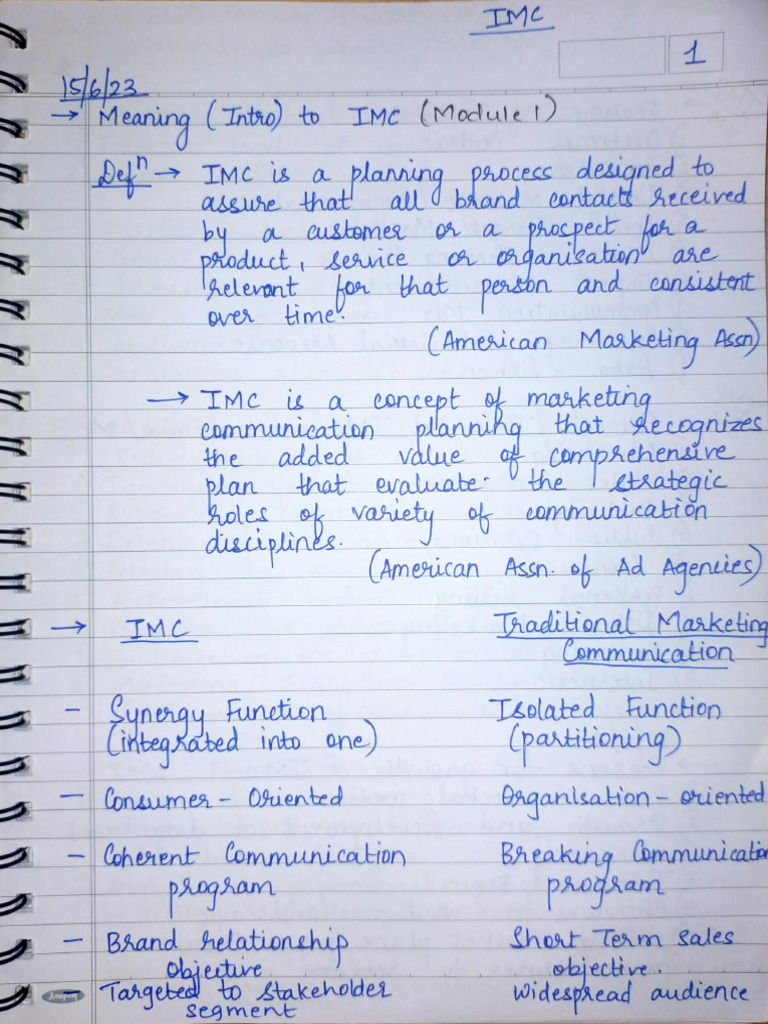 IMC
1
15/6/23
→ Meaning (Intro) to IMC (Module 1)
Defⁿ → IMC is a planning process designed to
assure that all brand contacts received
by a customer or a prospect for a
product, service or organisation are
relevant for that person and consistent
over time.
(American Marketing Assn)
→ IMC is a concept of marketing
communication planning that recognizes
the added value of comprehensive
plan that evaluate the strategic
roles of variety of communication
disciplines.
(American Assn. of Ad Agencies)
→ IMC Traditional Marketing
Communication
- Synergy Function Isolated Function
(integrated into one) (partitioning)
- Consumer - Oriented Organisation - oriented
- Coherent Communication Breaking Communication
program program
- Brand relationship Short Term sales
objective objective.
- Targeted to stakeholder widespread audience
segment